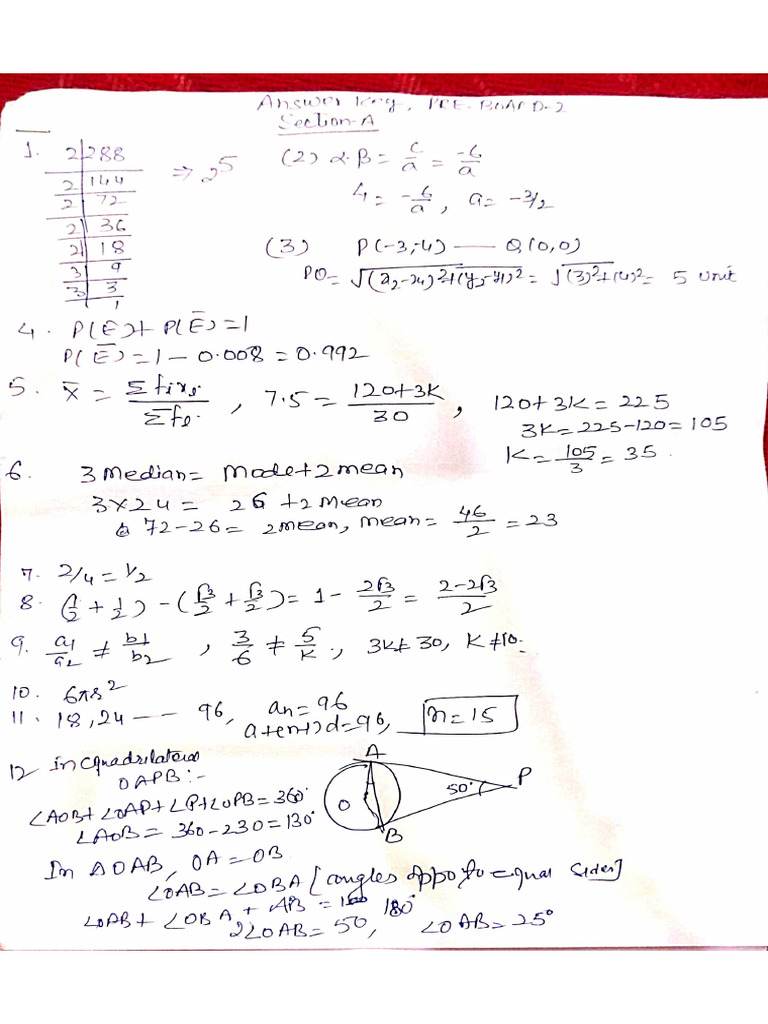 Answer Key, PRE-BOARD-2
Section-A
1. 2|288 ⇒ 2⁵
2|144
2|72
2|36
2|18
3|9
3|3
1
(2) α·β = c/a = -6/a
4 = -6/a, a = -3/2
(3) P(-3,-4) — Q(0,0)
PQ = √(x₂-x₁)²+(y₂-y₁)² = √(3)²+(4)² = 5 unit
4. P(E)+P(E̅)=1
P(E̅)=1-0.008=0.992
5. x̅ = Σfixi/Σfi, 7.5 = 120+3K/30, 120+3K=225
3K=225-120=105
K=105/3=35.
6. 3 Median = Mode+2 mean
3×24 = 26 +2 Mean
72-26 = 2mean, mean = 46/2 = 23
7. 2/4=1/2
8. (1/2+1/2)-(√3/2+√3/2)=1-2√3/2=2-2√3/2
9. a1/a2 ≠ b1/b2, 3/6 ≠ 5/K, 3K≠30, K≠10.
10. 6πr²
11. 18,24 --- 96, an=96
a+(n-1)d=96, n=15
12 In Quadrilateral
OAPB:-
∠AOB+∠OAP+∠P+∠OPB=360°
∠AOB=360-230=130°
A
O
B
50°
P
In ΔOAB, OA=OB
∠OAB=∠OBA [angles oppo to equal sides]
∠OAB+∠OBA+ = 180°
2∠OAB=50, ∠OAB=25°